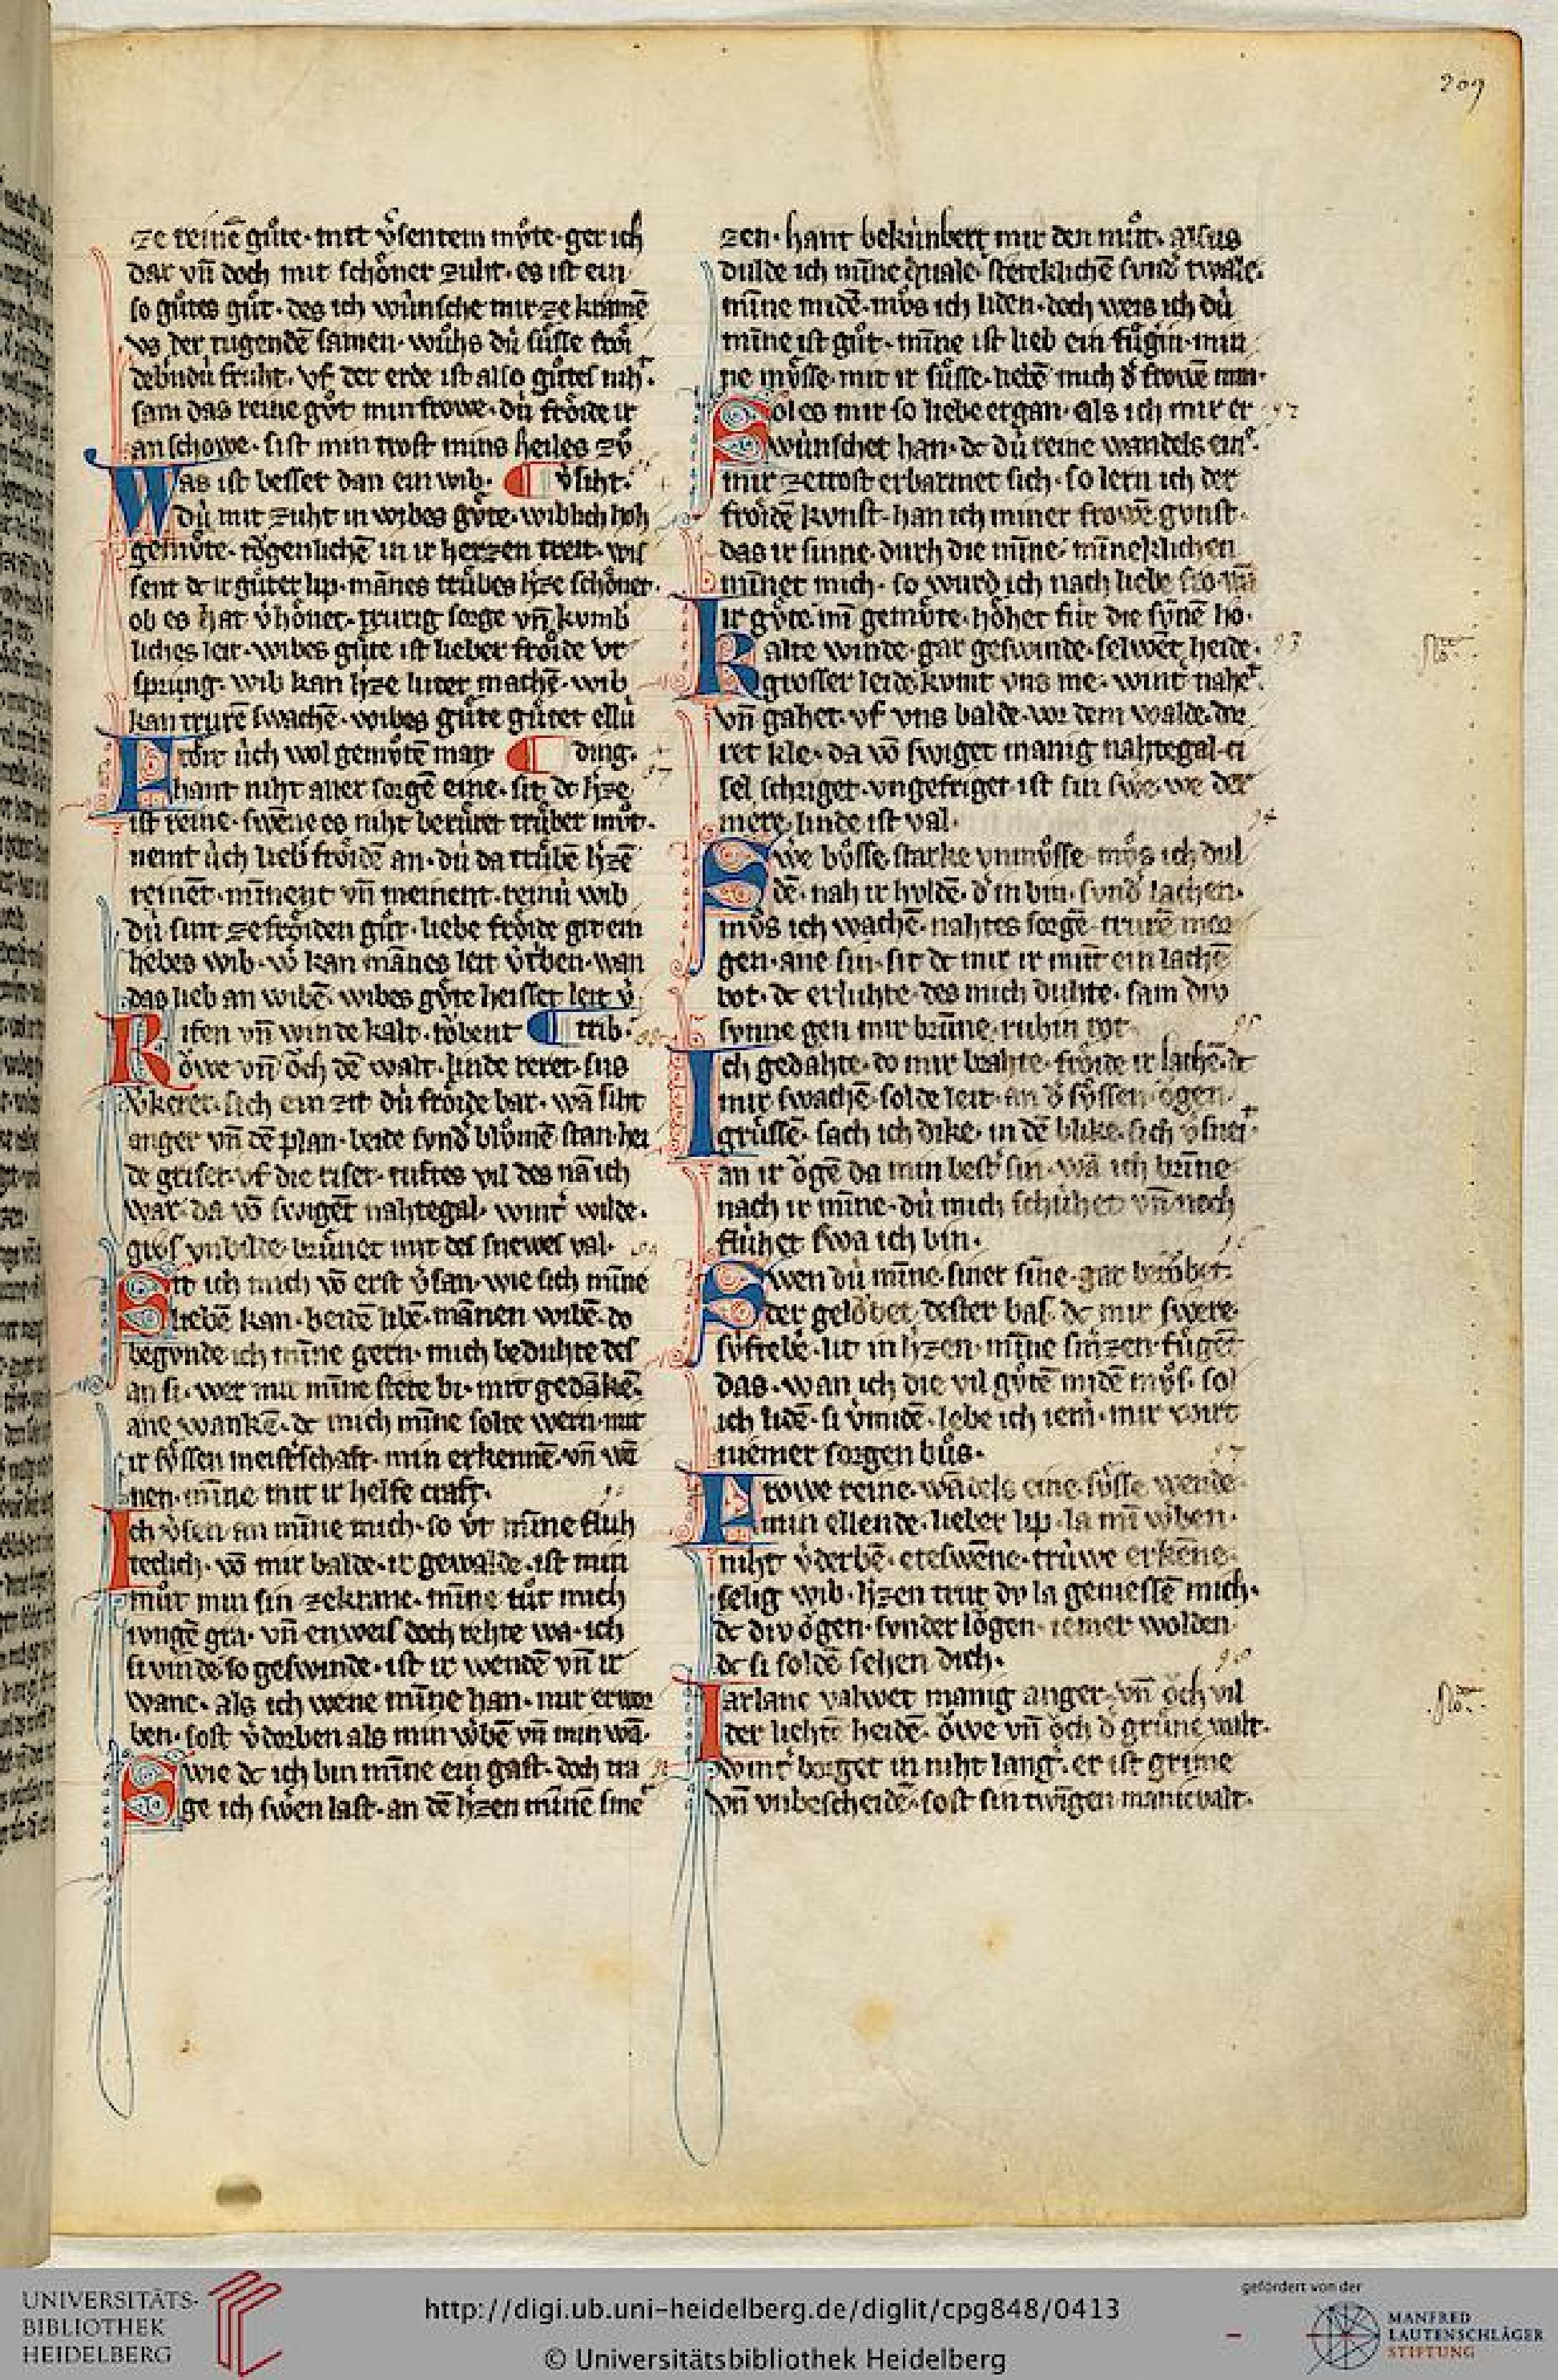 209
ze reinē gůte· mit v̾sentem můte· ger ich
dar vn̄ doch mit schöner zuht· es ist ein
so gůtes gůt· des ich wünsche mir ze kramē
vs der tugendē samen· wůhs dú süsse fröi
debndú fruht· vf der erde ist also gůtes niht·
sam das reine gůt min frowe· dú fröide ir
an schowe· si ist min trost mins heiles zů
Was ist besser dan ein wib· v̾siht·
dú mit zuht in wibes gůte· wiblich hoh
gemůte· tögenlichē in ir herzen treit· wis
sent dc ir gůter lip· mānes trůbes h̾ze schönet·
ob es hat v̾hönet· trurig sorge vn̄ kvmb̾
liches leit· wibes gůte ist lieber fröide vr
sprung· wib kan h̾ze luter machē· wib
kan trurē swachē· wibes gůte gůtet ellú
Fröit úch wol gemůtē man ding·
hant niht aller sorgē eine· sit dc h̾ze
ist reine· swēne es niht berůret trůber můt·
nemt úch lieb fröidē an· dú da trůbē h̾zē
reinēt· minnent vn̄ meinent· reinú wib
dú sint ze fröiden gůt· liebe fröide git ein
liebes wib· w̾ kan mānes leit v̾tben· wan
das lieb an wibē· wibes gůte heisset leit v̾
Risen vn̄ winde kalt· töbent trib·
öwe vn̄ öch dē walt· linde reret· sus
v̾keret· sich ein zit dú fröide bar· wā siht
anger vn̄ dē plan· beide svnd̾ blůmē stan· hei
de griset· vf die riset· riftes vil des nā ich
war· da vō swigēt nahtegal· wint̾ wilde·
gros vnbilde· brüuet mit des snewes val·
Sit ich mich vō erst v̾san· wie sich minne
liebē kan· beidē libē· mānen wibē· do
begvnde ich minne gern· mich beduhte des
an si· wer mir minne stete bi· mit gedākē·
ane wankē· dc mich mīne solte wern· mit
ir sůssen meist̾schaft· min erkennē· vn̄ wē
nen· mīne mit ir helfe craft·
Ich v̾sen an mīne mich· so v̾t mīne fluh
teclich· vō mir balde· ir gewalde· ist min
můt min sin ze krane· mīne tůt mich
ivngē gra· vn̄ enweis doch rehte wa· ich
si vinde so geswinde· ist ir wendē vn̄ ir
wane· als ich wene mīne han· mir erwor
ben· sost v̾dorben als min w̾bē vn̄ min wā·
Swie dc ich bin mīne ein gast· doch tra
ge ich swen last· an dē h̾zen minē sine
zen· hant bekúnbert mir den můt· alsus
dulde ich mīne quale· steteklichē svnd̾ twale·
mīne midē· můs ich liden· doch weis ich dú
mīne ist gůt· mīne ist lieb ein fůgin· min
ne můsse· mit ir sůsse· liebē mich d̾ frowē min·
Sol es mir so liebe ergan· als ich mir er
wúnschet han· dc dú reine wandels ein̾·
mir ze trost erbarmet sich· so lern ich der
fröidē kvnst· han ich miner frowē gvnst·
das ir sinne· durch die mīne· mīneklichen
mīnet mich· so wurd̾ ich nach liebe fro· wā
ir gůte· mī gemůte· höhet für die sv̾nē ho·
Kalte winde· gar geswinde· selwēt heide·
grosser leide kvmt vns me· wint̾ nahet·
vn̄ gahet· vf vns balde· vor dem walde· dor
ret kle· da vō swiget manig nahtegal· ti
sel schriget· vngefriget· ist sin swe· we der
mere· linde ist val·
Swe bůsse· starke vnmůsse· můs ich dul
dē· nah ir hvldē· d̾ in bin· svnd̾ lachen·
můs ich wachē· nahtes sorgē· trurē mor
gen· ane sin· sit dc mir ir mūt ein lachē
bot· dc erluhte· des mich duhte· sam div
svnne gen mir brüne· rubin rot
Ich gedahte· do mir brahte· fröide ir lachē· dc
mir swachē· solde leit· an d̾ sůssen ögen·
grůssē· sach ich dike· in dē blike· sich v̾snei·
an ir ögē da min best̾ sin· wā ich brīne
nach ir mīne· dú mich schühet vn̄ noch
flühet swa ich bin·
Swen dú mīne· siner sīne· gar beröbet·
der gelöbet· dester bas· dc mir swere
sůftebē· lit in h̾zen· mīne smzen· fůgēt
das· wan ich die vil gůtē midē můs· sol
ich lidē· si v̾midē· lebe ich iem̾· mir wirt
niemer sorgen bůs·
Frowe reine· wādels eine· sůsse wende
min ellende· lieber lip· la mī w̾ben·
niht v̾derbē· eteswēne· trúwe erkēne·
selig wib· h̾zen trut dv la geniessē mich·
dc div ögen· svnder lögen· iemer wolden
dc si soldē sehen dich·
Iarlanc valwet manig anger· vn̄ öch vil
der liehtē heidē· öwe vn̄ öch d̾ grůne walt·
wint̾ borget in niht lang̾· er ist grime
vn̄ vnbescheidē· sost sin twīgen manicvalt·
UNIVERSITÄTS-
BIBLIOTHEK
HEIDELBERG
http://digi.ub.uni-heidelberg.de/diglit/cpg848/0413
© Universitätsbibliothek Heidelberg
gefördert von der
MANFRED
LAUTENSCHLÄGER
STIFTUNG